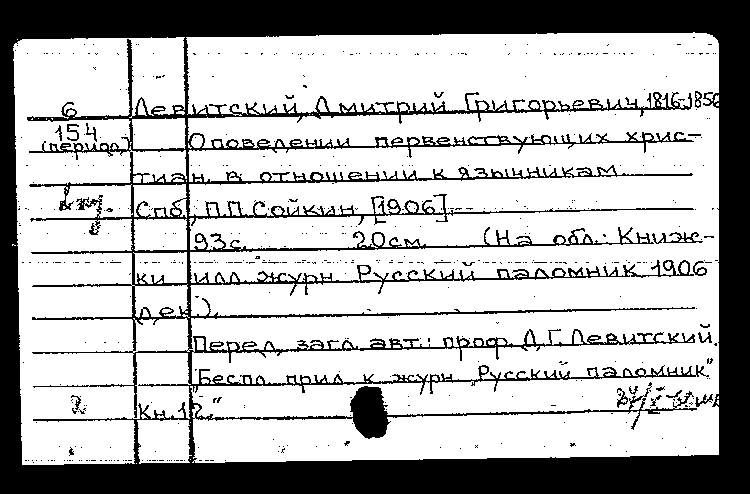 6 Левитский, Дмитрий Григорьевич, 1816-1856
154 О поведении первенствующих хрис-
(период.)
тиан в отношении к язычникам.
Спб., П.П. Сойкин, [1906].
93с. 20см. (На обл.: Книж-
ки илл. журн. Русский паломник 1906
дек.).
Перед загл. авт.: проф. Д.Г. Левитский.
"Беспл. прил. к журн. "Русский паломник"
2 Кн. 12."